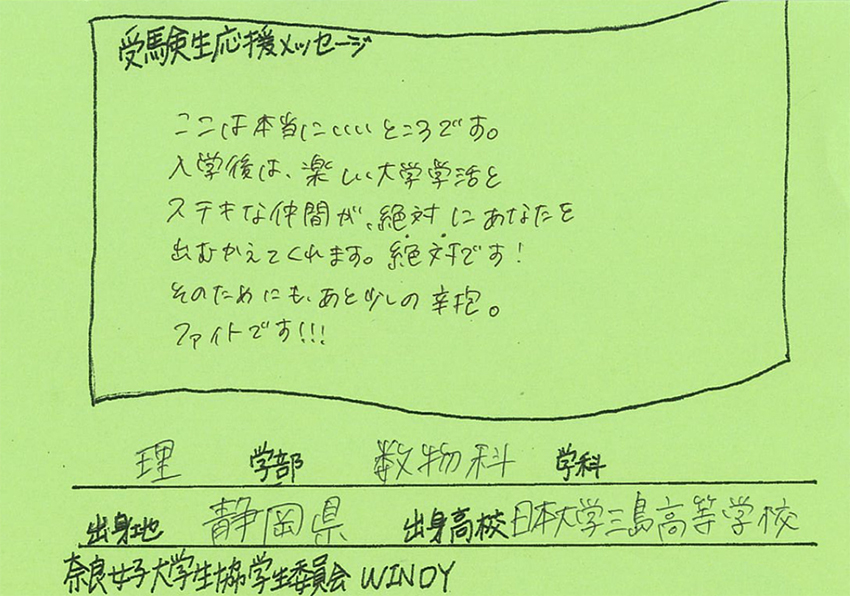 受験生応援メッセージ
ここは本当にいいところです。
入学後は、楽しい大学学活と
ステキな仲間が、絶対にあなたを
出むかえてくれます。絶対です!
そのためにも、あと少しの辛抱。
ファイトです!!!
理 学部 数物科 学科
出身地 静岡県 出身高校 日本大学三島高等学校
奈良女子大学生協学生委員会 WINDY